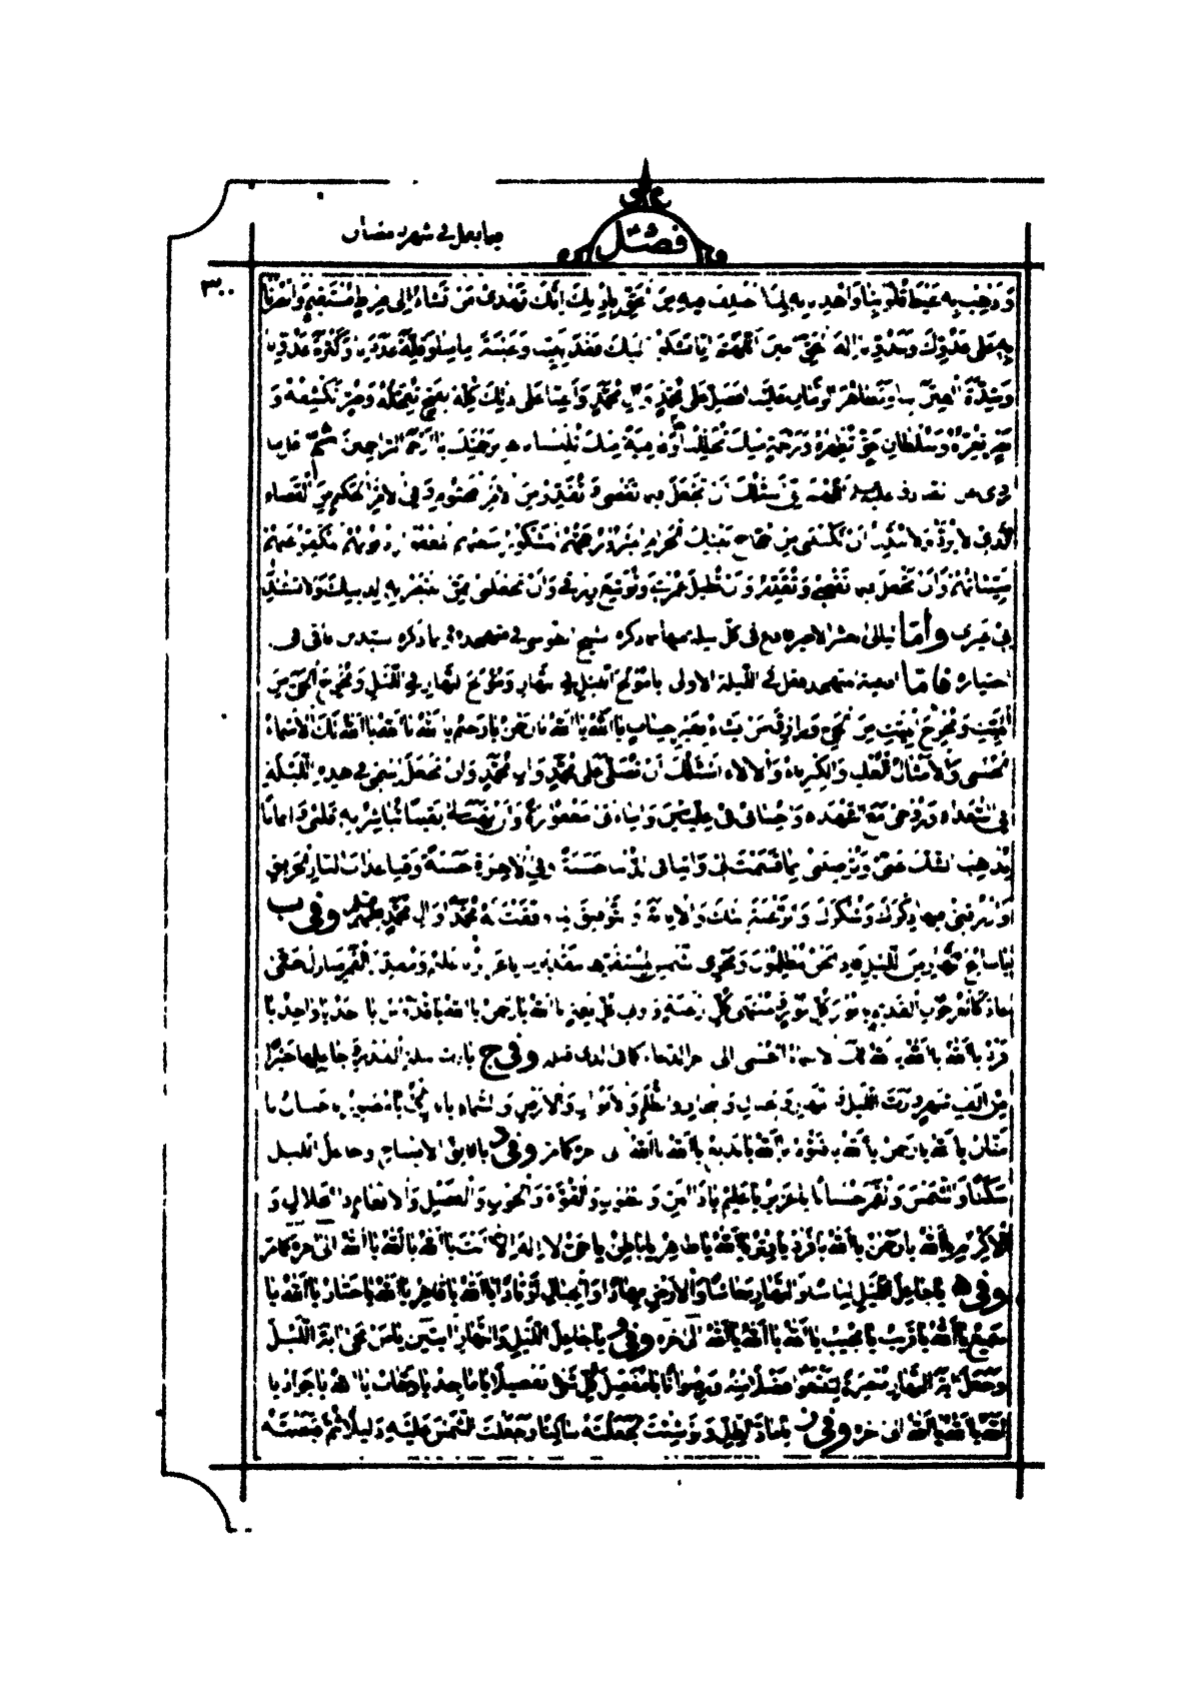 فصل
فيما يعمل في شهر رمضان
٣٠٠
وَ وَذْهِبْ بِهِ غَيْظَ قُلُوبِنَا وَاهْدِنَا بِهِ لِمَا اخْتُلِفَ فِيهِ مِنَ الْحَقِّ بِإِذْنِكَ إِنَّكَ تَهْدِي مَنْ تَشَاءُ إِلَى صِرَاطٍ مُسْتَقِيمٍ وَانْصُرْنَا
بِهِ عَلَى عَدُوِّكَ وَعَدُوِّنَا إِلَهَ الْحَقِّ آمِينَ اللَّهُمَّ إِنَّا نَشْكُو إِلَيْكَ فَقْدَ نَبِيِّنَا وَغَيْبَةَ وَقِلَّةَ عَدَدِنَا وَكَثْرَةَ عَدُوِّنَا
وَشِدَّةَ الْفِتَنِ بِنَا وَتَظَاهُرَ الزَّمَانِ عَلَيْنَا فَصَلِّ عَلَى مُحَمَّدٍ وَآلِ مُحَمَّدٍ وَأَعِنَّا عَلَى ذَلِكَ كُلِّهِ بِفَتْحٍ تُعَجِّلُهُ وَضُرٍّ تَكْشِفُهُ وَ
نَصْرٍ تُعِزُّهُ وَسُلْطَانِ حَقٍّ تُظْهِرُهُ وَرَحْمَةٍ مِنْكَ تُجَلِّلُنَاهَا وَعَافِيَةٍ مِنْكَ تُلْبِسُنَاهَا بِرَحْمَتِكَ يَا أَرْحَمَ الرَّاحِمِينَ ثُمَّ
اللَّهُمَّ إِنِّي أَسْأَلُكَ أَنْ تَجْعَلَ فِيمَا تَقْضِي وَتُقَدِّرُ مِنَ الْأَمْرِ الْمَحْتُومِ وَفِي الْأَمْرِ الْحَكِيمِ مِنَ الْقَضَاءِ
الَّذِي لَا يُرَدُّ وَلَا يُبَدَّلُ أَنْ تَكْتُبَنِي مِنْ حُجَّاجِ بَيْتِكَ الْحَرَامِ الْمَبْرُورِ حَجُّهُمْ الْمَشْكُورِ سَعْيُهُمْ الْمَغْفُورِ ذُنُوبُهُمْ الْمُكَفَّرِ عَنْهُمْ
سَيِّئَاتُهُمْ وَأَنْ تَجْعَلَ فِيمَا تَقْضِي وَتُقَدِّرُ وَأَنْ تُطِيلَ عُمْرِي وَتُوَسِّعَ رِزْقِي وَأَنْ تَجْعَلَنِي مِمَّنْ تَنْتَصِرُ بِهِ لِدِينِكَ وَلَا تَسْتَبْدِلْ
بِي غَيْرِي وأمّا ليالي العشر الاخيرة في كل ليلة منها ما ذكره الشيخ الطوسي في متهجده
فَأمّا في الليلة الاولى يَا مُولِجَ اللَّيْلِ فِي النَّهَارِ وَمُولِجَ النَّهَارِ فِي اللَّيْلِ وَمُخْرِجَ الْحَيِّ مِنَ
الْمَيِّتِ وَمُخْرِجَ الْمَيِّتِ مِنَ الْحَيِّ وَيَا رَازِقَ مَنْ يَشَاءُ بِغَيْرِ حِسَابٍ يَا أَللهُ يَا أَللهُ يَا رَحْمَنُ يَا رَحِيمُ يَا أَللهُ يَا أَللهُ يَا أَللهُ لَكَ الْأَسْمَاءُ
الْحُسْنَى وَالْأَمْثَالُ الْعُلْيَا وَالْكِبْرِيَاءُ وَالْآلَاءُ أَسْأَلُكَ أَنْ تُصَلِّيَ عَلَى مُحَمَّدٍ وَآلِ مُحَمَّدٍ وَأَنْ تَجْعَلَ اسْمِي فِي هَذِهِ اللَّيْلَةِ
فِي السُّعَدَاءِ وَرُوحِي مَعَ الشُّهَدَاءِ وَإِحْسَانِي فِي عِلِّيِّينَ وَإِسَاءَتِي مَغْفُورَةً وَأَنْ تَهَبَ لِي يَقِينًا تُبَاشِرُ بِهِ قَلْبِي وَإِيمَانًا
يُذْهِبُ الشَّكَّ عَنِّي وَتُرْضِيَنِي بِمَا قَسَمْتَ لِي وَآتِنَا فِي الدُّنْيَا حَسَنَةً وَفِي الْآخِرَةِ حَسَنَةً وَقِنَا عَذَابَ النَّارِ الْحَرِيقِ
وَارْزُقْنِي فِيهَا ذِكْرَكَ وَشُكْرَكَ وَالرَّغْبَةَ إِلَيْكَ وَالْإِنَابَةَ وَالتَّوْفِيقَ لِمَا وَفَّقْتَ لَهُ مُحَمَّدًا وَآلَ مُحَمَّدٍ وفي ب
يَا سَالِخَ النَّهَارِ مِنَ اللَّيْلِ فَإِذَا نَحْنُ مُظْلِمُونَ وَمُجْرِيَ الشَّمْسِ لِمُسْتَقَرِّهَا بِتَقْدِيرِكَ يَا عَزِيزُ يَا عَلِيمُ وَمُقَدِّرَ الْقَمَرِ مَنَازِلَ حَتَّى
عَادَ كَالْعُرْجُونِ الْقَدِيمِ يَا نُورَ كُلِّ نُورٍ وَمُنْتَهَى كُلِّ رَغْبَةٍ وَوَلِيَّ كُلِّ نِعْمَةٍ يَا أَللهُ يَا رَحْمَنُ يَا أَللهُ يَا قُدُّوسُ يَا أَحَدُ يَا وَاحِدُ يَا
فَرْدُ يَا أَللهُ يَا أَللهُ يَا أَللهُ لَكَ الْأَسْمَاءُ الْحُسْنَى الى اخر الدعاء كما في وفي ج يَا رَبَّ لَيْلَةِ الْقَدْرِ وَجَاعِلَهَا خَيْرًا
مِنْ أَلْفِ شَهْرٍ وَرَبَّ اللَّيْلِ وَالنَّهَارِ وَالْجِبَالِ وَالْبِحَارِ وَالظُّلَمِ وَالْأَنْوَارِ وَالْأَرْضِ وَالسَّمَاءِ يَا بَارِئُ يَا مُصَوِّرُ يَا حَنَّانُ يَا
مَنَّانُ يَا أَللهُ يَا رَحْمَنُ يَا أَللهُ يَا قَيُّومُ يَا أَللهُ يَا بَدِيعُ يَا أَللهُ يَا أَللهُ الى اخره كما مر وفي د يَا فَالِقَ الْإِصْبَاحِ وَجَاعِلَ اللَّيْلِ
سَكَنًا وَالشَّمْسَ وَالْقَمَرَ حُسْبَانًا يَا عَزِيزُ يَا عَلِيمُ يَا ذَا الْمَنِّ وَالطَّوْلِ وَالْقُوَّةِ وَالْحَوْلِ وَالْفَضْلِ وَالْإِنْعَامِ وَالْجَلَالِ وَ
الْإِكْرَامِ يَا أَللهُ يَا رَحْمَنُ يَا أَللهُ يَا فَرْدُ يَا وِتْرُ يَا أَللهُ يَا ظَاهِرُ يَا بَاطِنُ يَا حَيُّ لَا إِلَهَ إِلَّا أَنْتَ يَا أَللهُ يَا أَللهُ يَا أَللهُ الى اخره كما مر
وفي ه يَا جَاعِلَ اللَّيْلِ لِبَاسًا وَالنَّهَارِ مَعَاشًا وَالْأَرْضِ مِهَادًا وَالْجِبَالِ أَوْتَادًا يَا أَللهُ يَا قَاهِرُ يَا أَللهُ يَا جَبَّارُ يَا أَللهُ يَا
سَمِيعُ يَا أَللهُ يَا قَرِيبُ يَا مُجِيبُ يَا أَللهُ يَا أَللهُ يَا أَللهُ الى اخره وفي و يَا جَاعِلَ اللَّيْلِ وَالنَّهَارِ آيَتَيْنِ يَا مَنْ مَحَى آيَةَ اللَّيْلِ
وَجَعَلَ آيَةَ النَّهَارِ مُبْصِرَةً لِتَبْتَغُوا فَضْلًا مِنْهُ وَرِضْوَانًا يَا مُفَصِّلَ كُلِّ شَيْءٍ تَفْصِيلًا يَا مَاجِدُ يَا وَهَّابُ يَا أَللهُ يَا جَوَادُ يَا
أَللهُ يَا أَللهُ يَا أَللهُ الى اخره وفي ز يَا مَادَّ الظِّلِّ وَلَوْ شِئْتَ لَجَعَلْتَهُ سَاكِنًا وَجَعَلْتَ الشَّمْسَ عَلَيْهِ دَلِيلًا ثُمَّ قَبَضْتَهُ